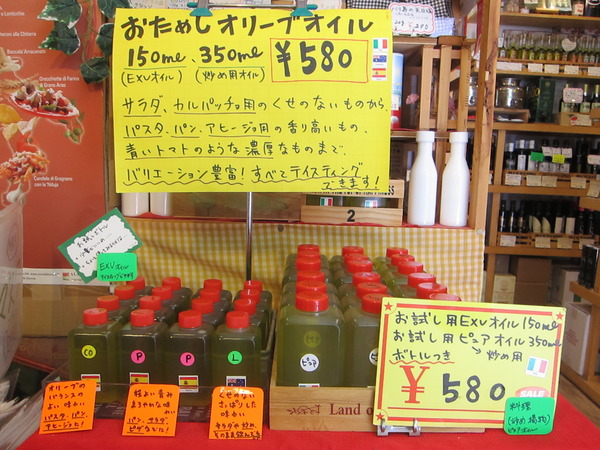 おためしオリーブオイル
150ml、350ml ¥580
(EXVオイル) (炒め用オイル)
サラダ、カルパッチョ用のくせのないものから、
パスタ、パン、アヒージョ用の香り高いもの、
青いトマトのような濃厚なものまで、
バリエーション豊富!すべてテイスティング
できます!
2
お試しボトル
EXVオイル
CO
P
P
L
ピュア
お試し用EXVオイル150ml
お試し用ピュアオイル350ml
ボトルつき
→炒め用
¥580
SALE
料理
(炒め揚物)
オリーブの
バランスの
よい味わい
パスタ、パン、
アヒージョに!
程よい苦み
まろやかな味
わい
パン、サラダ、
くせのない
さっぱりした
味わい
サラダや炒め、
Land o
Orecchiette di Farina
di Grano Arso
Candele di Gragnano
con la 'Nduja